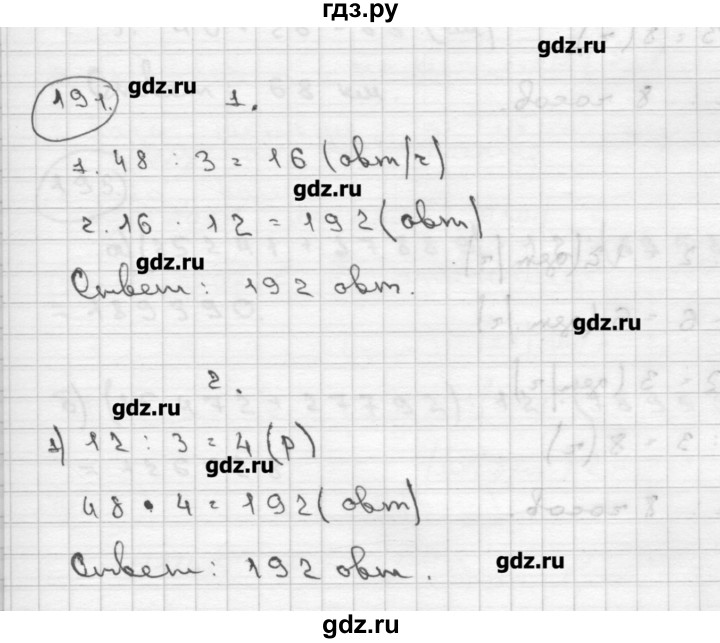 гдз.ру
gdz.ru
191. gdz.ru 1.
1. 48 : 3 = 16 (авт/ч)
gdz.ru
2. 16 · 12 = 192 (авт)
gdz.ru
Ответ: 192 авт.
gdz.ru
2.
gdz.ru
1) 12 : 3 = 4 (р)
gdz.ru
48 • 4 = 192 (авт)
gdz.ru
Ответ: 192 авт.
gdz.ru